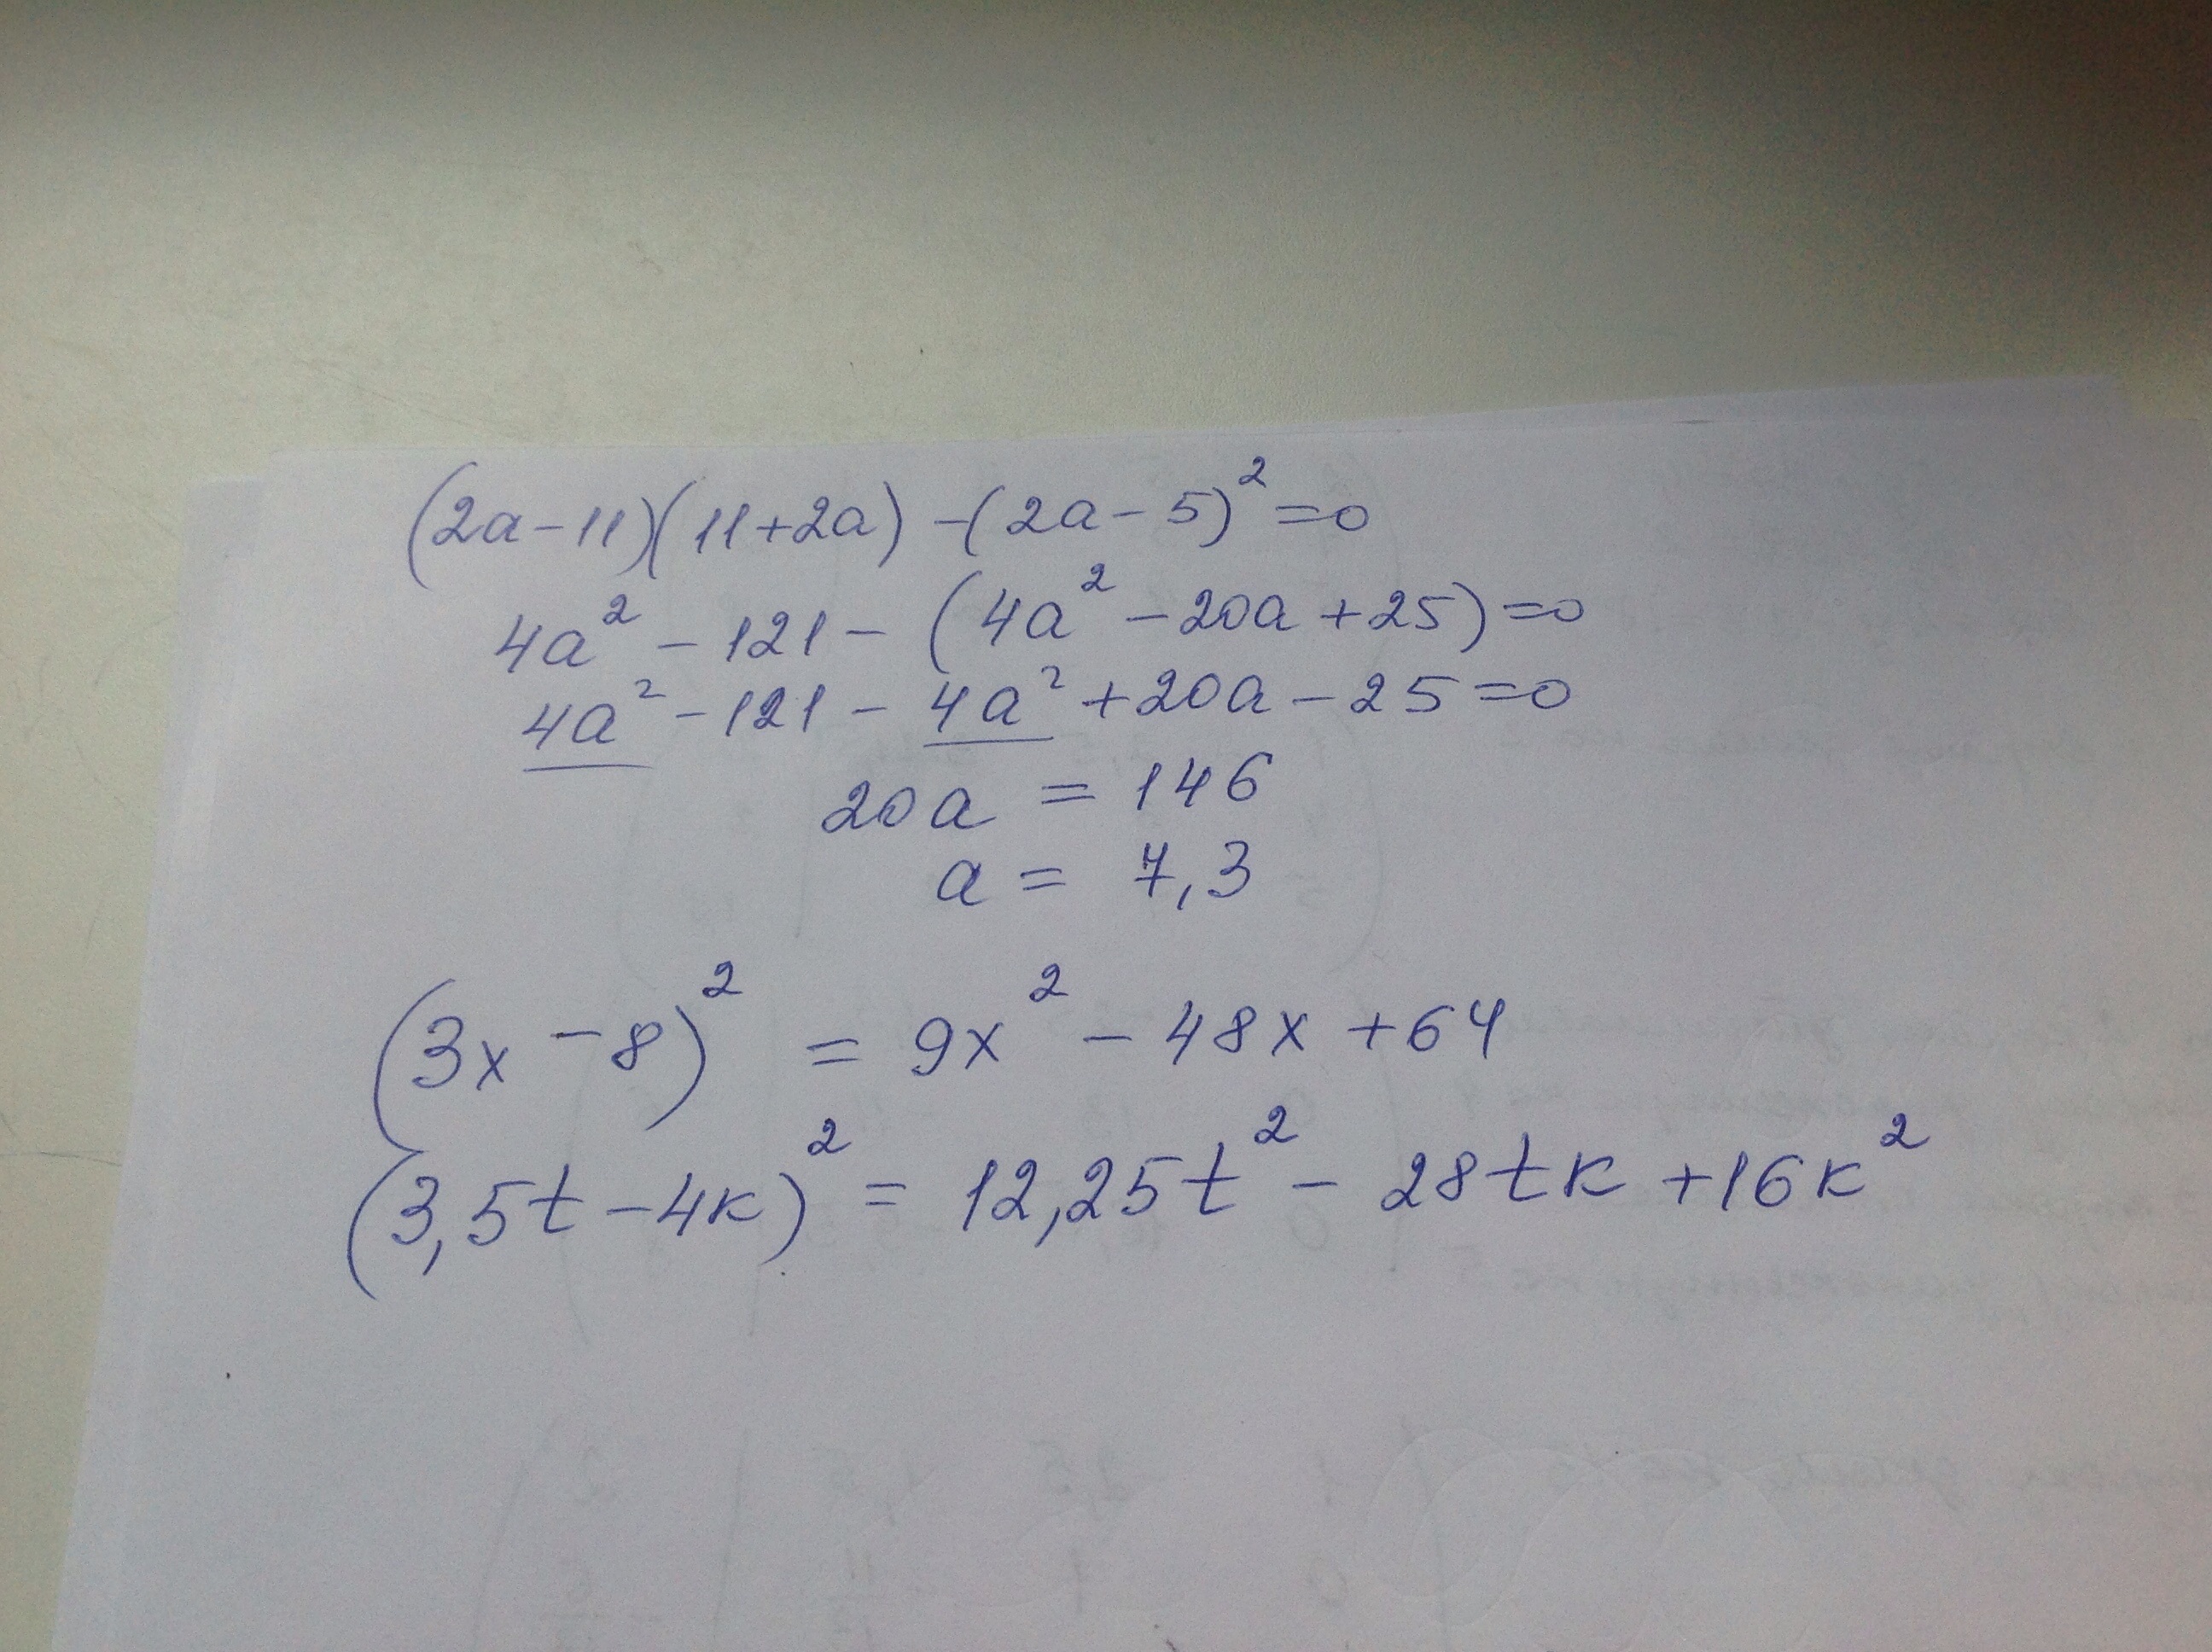 (2a-11)(11+2a)-(2a-5)²=0
4a²-121-(4a²-20a+25)=0
4a²-121-4a²+20a-25=0
20a = 146
a = 7,3
(3x-8)² = 9x²-48x+64
(3,5t-4к)² = 12,25t²-28tк+16к²